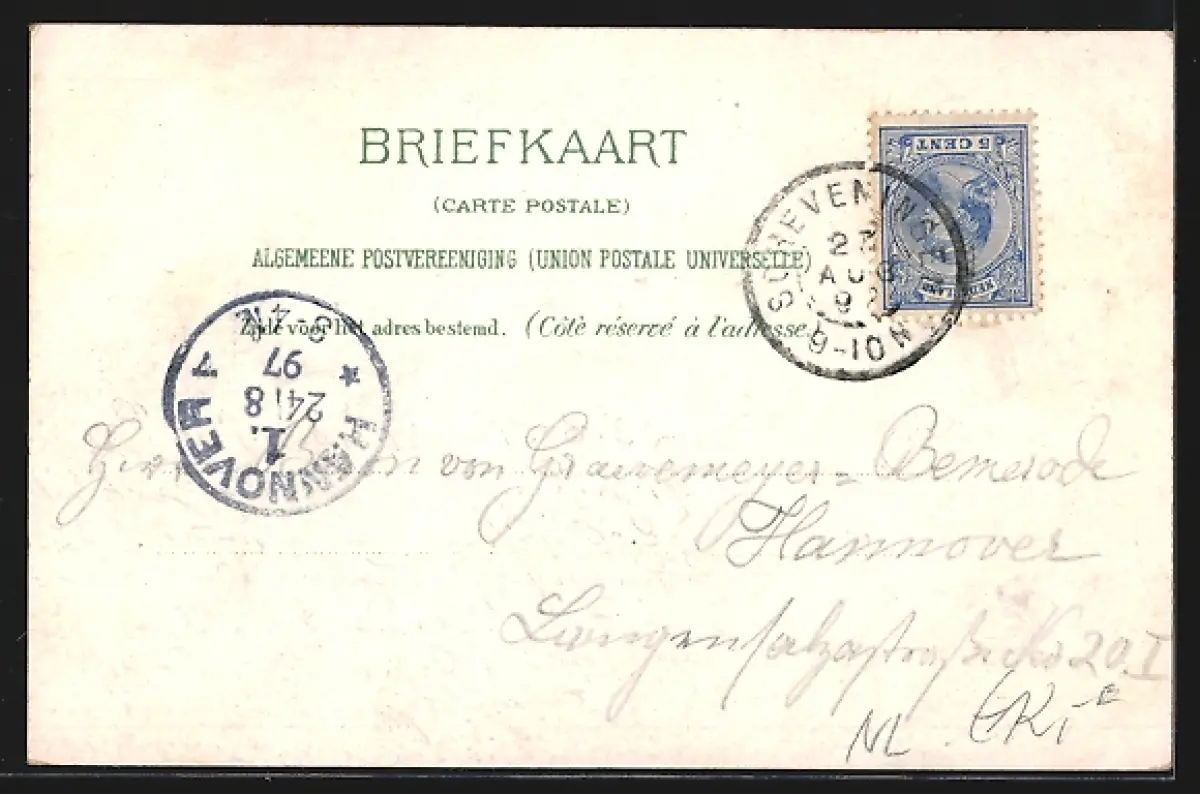 BRIEFKAART
(CARTE POSTALE)
ALGEMEENE POSTVEREENIGING (UNION POSTALE UNIVERSELLE)
Zijde voor het adres bestemd. (Côté réservé à l'adresse.)
5 CENT
NEDERLAND
SCHEVENINGEN
AUG
9-10N
HANNOVER
1.
24 8
97
3-4N.
von Bemerode
Hannover
Langensalzastraße No 20. I
NL.